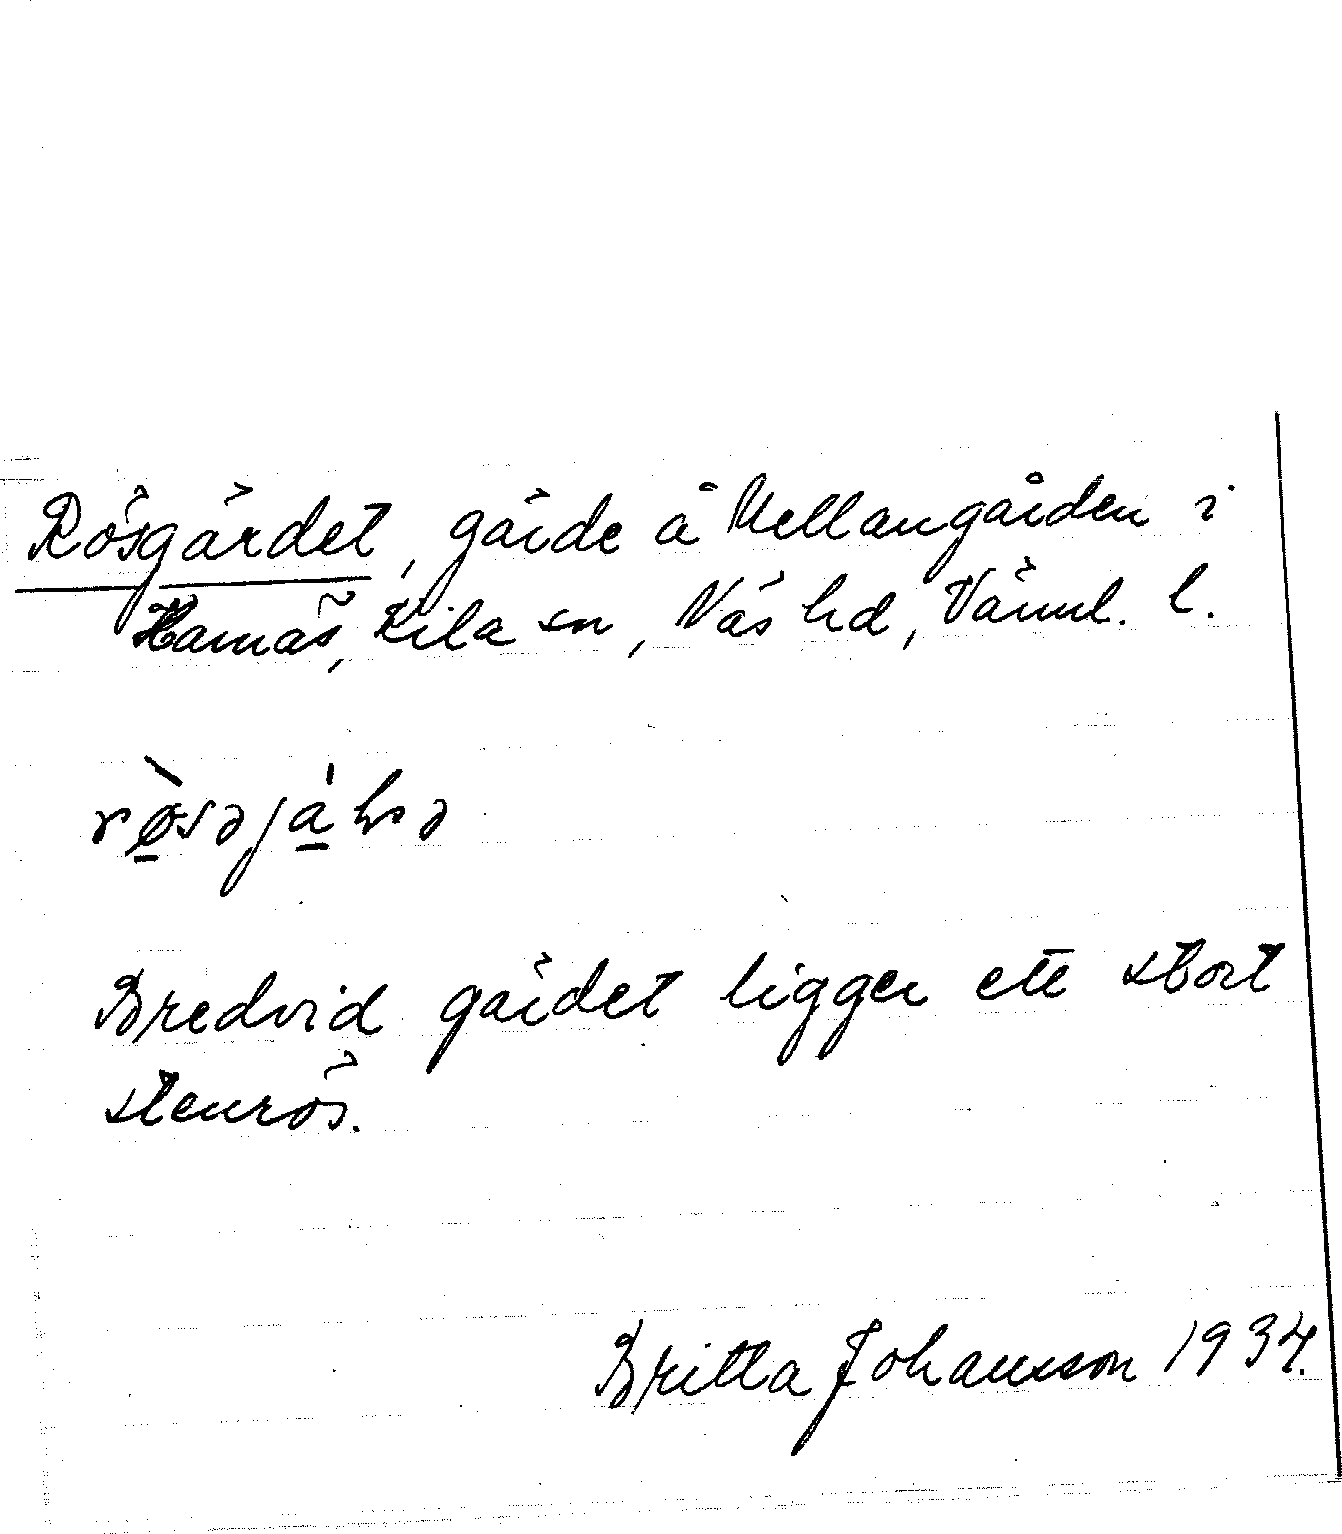 Rösgärdet, gärde å Mellangården i
Hamäs, Kila sn, Näs hd, Värml. l.
Bredvid gärdet ligger ett stort
stenrös.
Britta Johansson 1934.